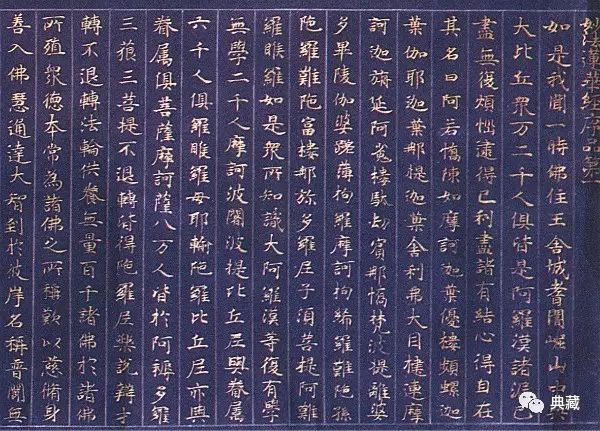 妙法蓮華經序品第一
如是我聞一時佛住王舍城耆闍崛山中
大比丘眾万二千人俱皆是阿羅漢諸漏已
盡無復煩惱逮得己利盡諸有結心得自在
其名曰阿若憍陳如摩訶迦葉優樓頻螺迦
葉伽耶迦葉那提迦葉舍利弗大目揵連摩
訶迦旃延阿㝹樓馱劫賓那憍梵波提離婆
多畢陵伽婆蹉薄拘羅摩訶拘絺羅難陀孫
陀羅難陀富樓那弥多羅尼子須菩提阿難
羅睺羅如是眾所知識大阿羅漢等復有學
無學二千人摩訶波闍波提比丘尼與眷屬
六千人俱羅睺羅母耶輸陀羅比丘尼亦與
眷屬俱菩薩摩訶薩八万人皆於阿耨多羅
三藐三菩提不退轉皆得陀羅尼樂說辯才
轉不退轉法輪供養無量百千諸佛於諸佛
所殖眾德本常為諸佛之所稱歎以慈脩身
善入佛慧通達大智到於彼岸名稱普聞無
典藏